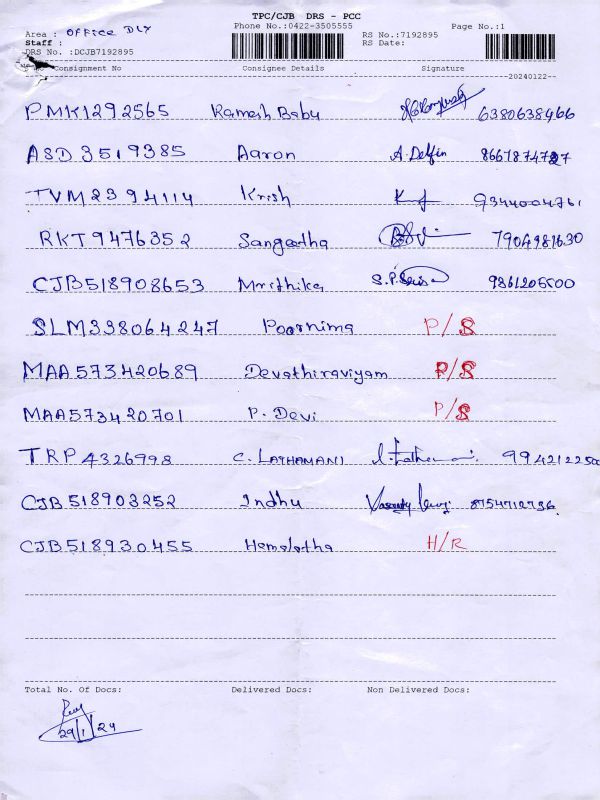 TPC/CJB DRS - PCC
Area : OFFICE DLY Phone No.:0422-3505555 RS No.:7192895 Page No.:1
Staff : RS Date:
DRS No. :DCJB7192895
Consignment No Consignee Details Signature
--20240122--
PMK1292565 Ramesh Babu 6380638466
ASD3519385 Aaron A. Delfin 8667874727
TVM2394114 Krish 9344004761
RKT9476352 Sangeetha 7904981630
CJB518908653 Mrithika 9861205500
SLM338064247 Poornima P/S
MAA573420689 Devathiraviyam P/S
MAA573420701 P. Devi P/S
TRP4326998 C. LATHAMANI
CJB518903252 Indhu 8754712736
CJB518930455 Hemalatha H/R
Total No. Of Docs: Delivered Docs: Non Delivered Docs:
29/1/24